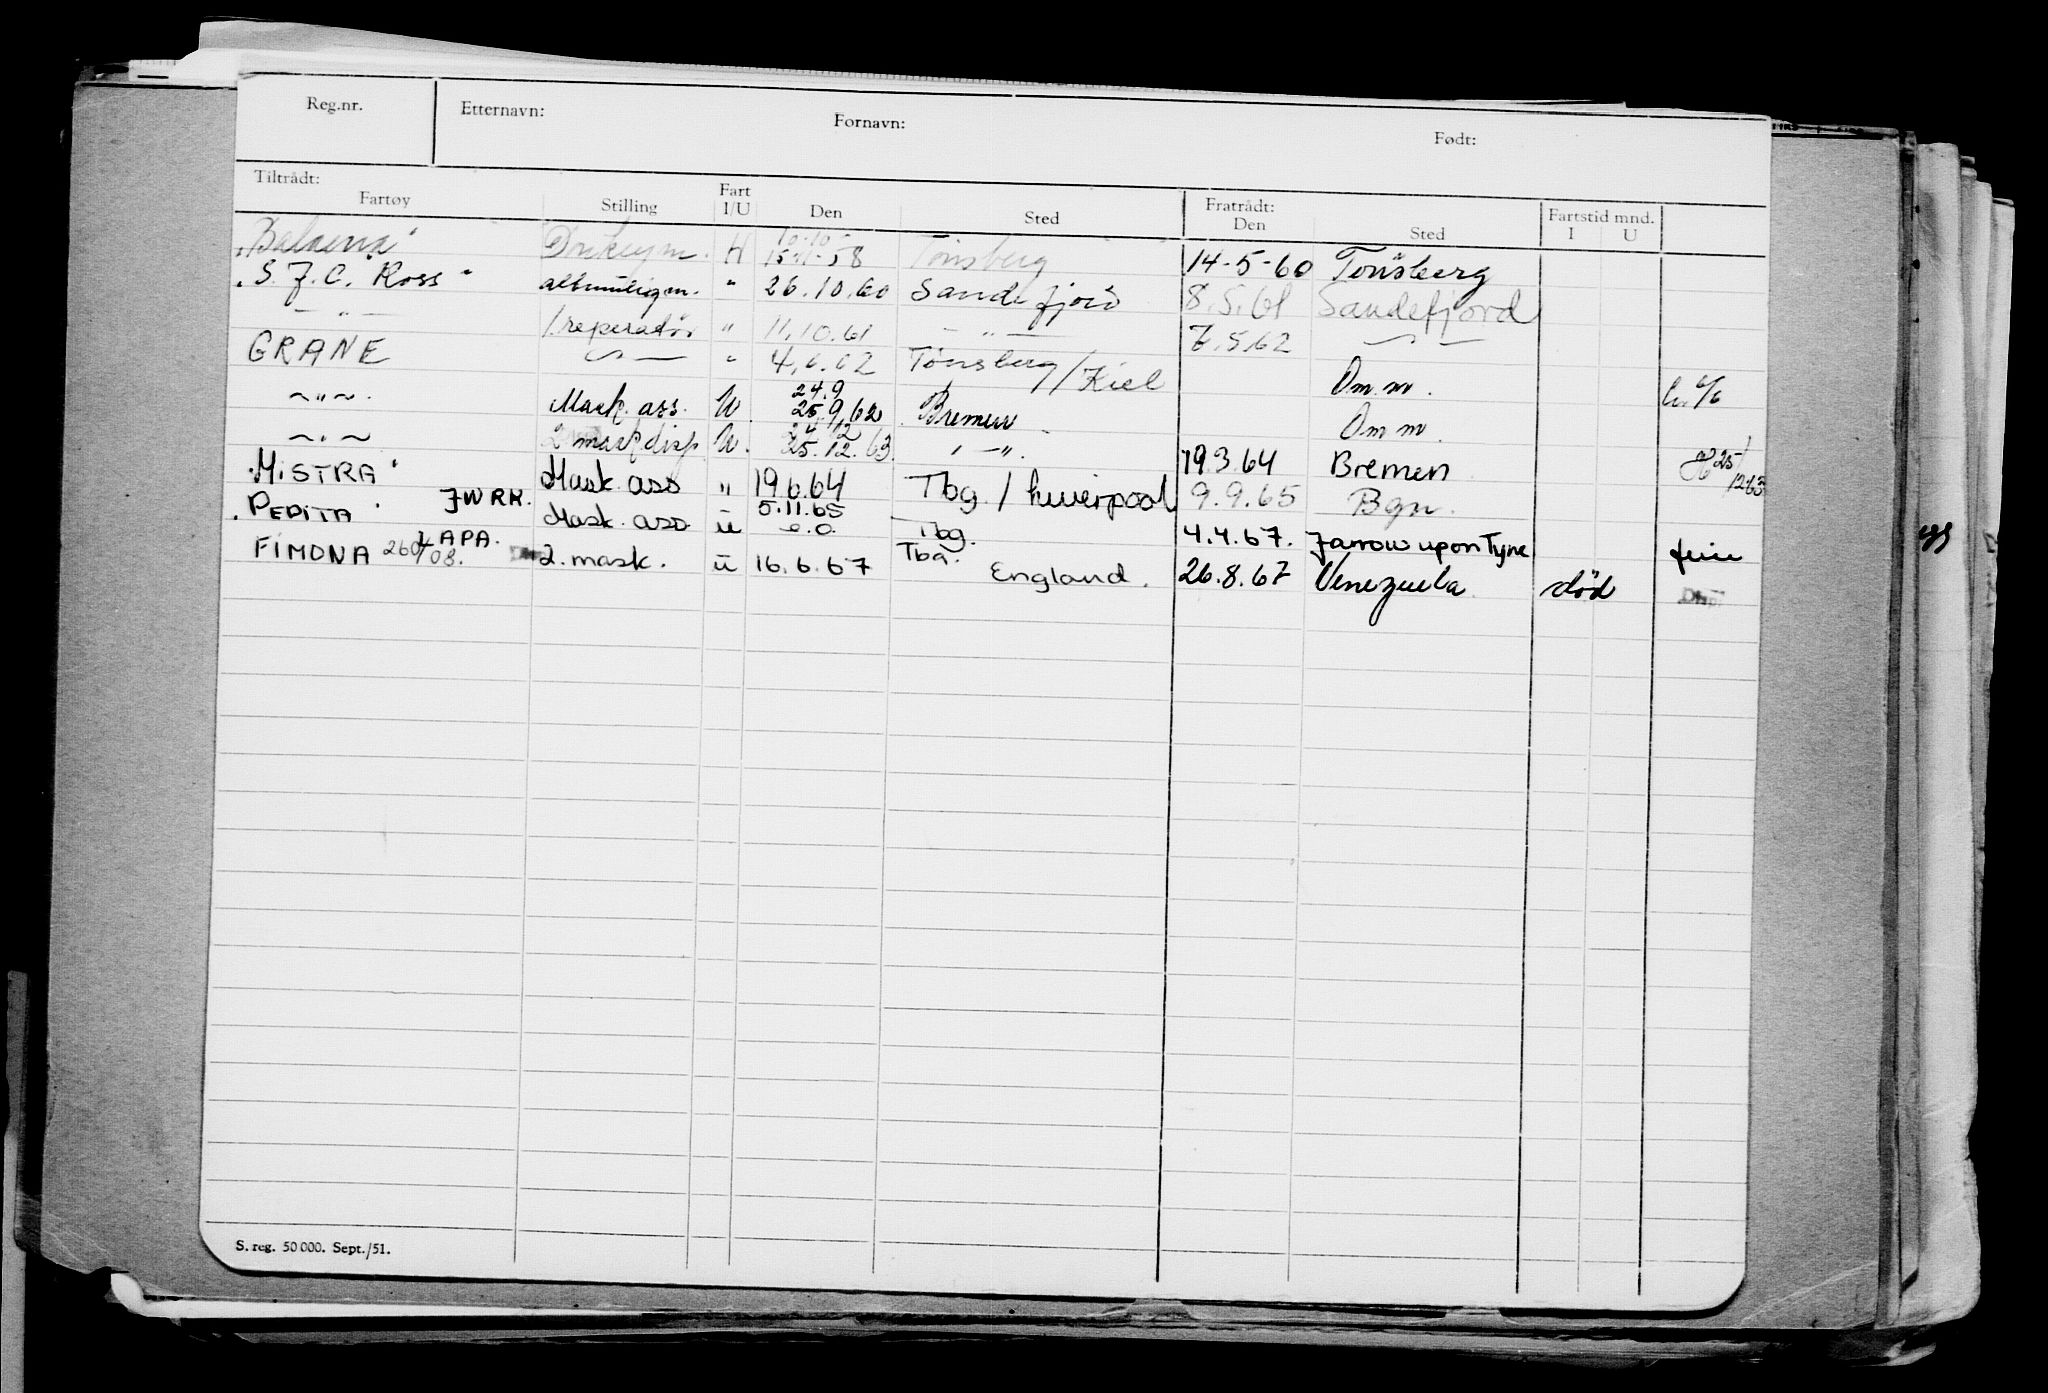 Reg.nr. Etternavn: Fornavn: Født:
Tiltrådt: Fratrådt: Fartstid mnd.
Fartøy Stilling Fart I/U Den Sted Den Sted I U
"Balaena" H 10-10- 15-11-58 Tønsberg 14-5-60 Tønsberg
"S. J. C. Ross" " 26.10.60 Sandefjord 8.5.61 Sandefjord
— " — 1 reperatør " 11.10.61 — " — 7.5.62 — " —
GRANE — " — " 4.6.62 Tønsberg/Kiel Om.m.
~ " ~. Mask. ass. U 24.9 25.9.62 Bremen Om m.
~ " ~ 2 mask disp U. 24.12 25.12.63. " — ". 19.3.64 Bremen 25/1263
"MISTRA" Mask. ass " 19.6.64 Tbg. / Liverpool 9.9.65 Bgn.
"PEDITA" JWRK. Mask. ass u 5.11.65 e.o. Tbg. 4.4.67. Jarrow upon Tyne ferie
FIMONA LAPA. 260/08. 2. mask. u 16.6.67 Tbg. England. 26.8.67 Venezuela død Disp
S. reg. 50 000. Sept./51.